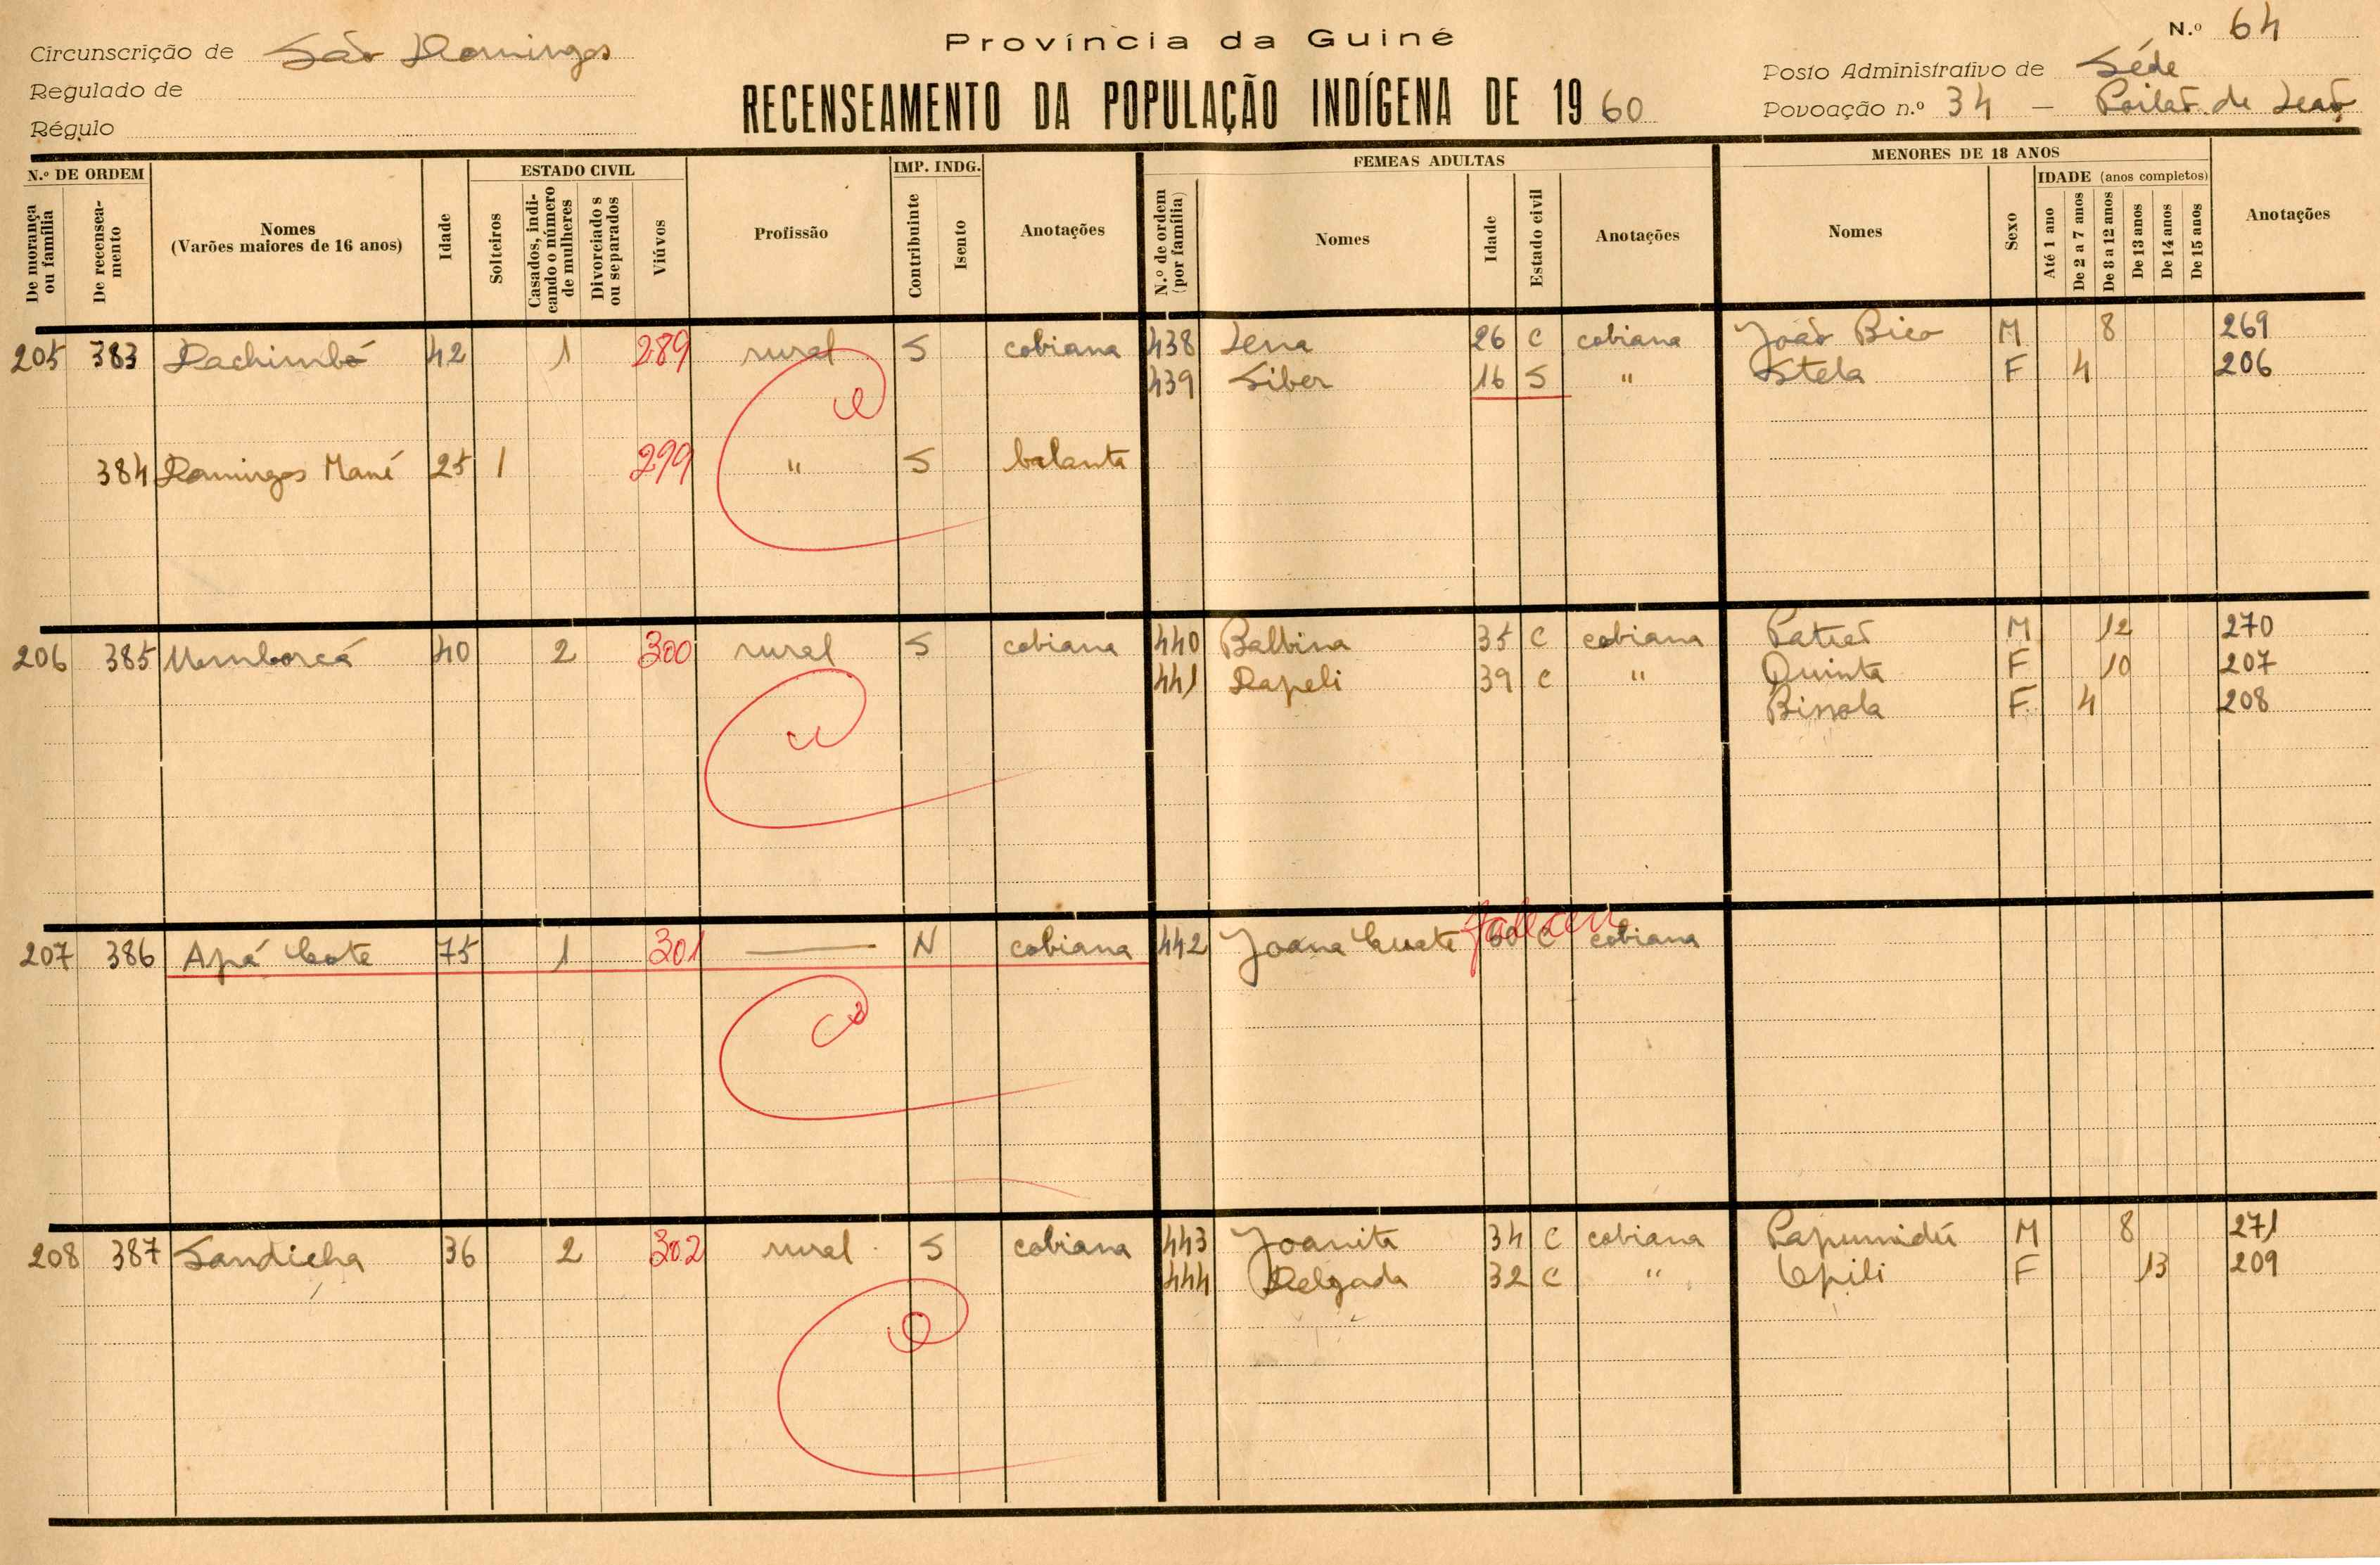 Província da Guiné
N.º 64
Circunscrição de São Domingos
Regulado de
Régulo
RECENSEAMENTO DA POPULAÇÃO INDÍGENA DE 1960
Posto Administrativo de Séde
Povoação n.º 34 — Poilão de Leão
N.º DE ORDEM
De morança ou família
De recenseamento
Nomes
(Varões maiores de 16 anos)
Idade
ESTADO CIVIL
Solteiros
Casados, indicando o número de mulheres
Divorciados ou separados
Viúvos
Profissão
IMP. INDG.
Contribuinte
Isento
Anotações
FEMEAS ADULTAS
N.º de ordem (por família)
Nomes
Idade
Estado civil
Anotações
MENORES DE 18 ANOS
Nomes
Sexo
IDADE (anos completos)
Até 1 ano
De 2 a 7 anos
De 8 a 12 anos
De 13 anos
De 14 anos
De 15 anos
Anotações
205 383 Dachimbó 42 1 289 rural S cobiana 438 Lena 26 C cobiana João Bico M 8 269
439 Siber 16 S " Stela F 4 206
384 Domingos Mané 25 1 299 " S balanta
206 385 300 40 2 rural S cobiana 440 Balbina 35 C cobiana M 12 270
441 Dapeli 39 C " Quinta F 10 207
Bissola F 4 208
207 386 Apá 75 1 301 — N cobiana 442 Joana 60 C cobiana
faleceu
208 387 Sandicha 36 2 302 rural S cobiana 443 Joanita 34 C cobiana M 8 271
444 Delgada 32 C " F 13 209